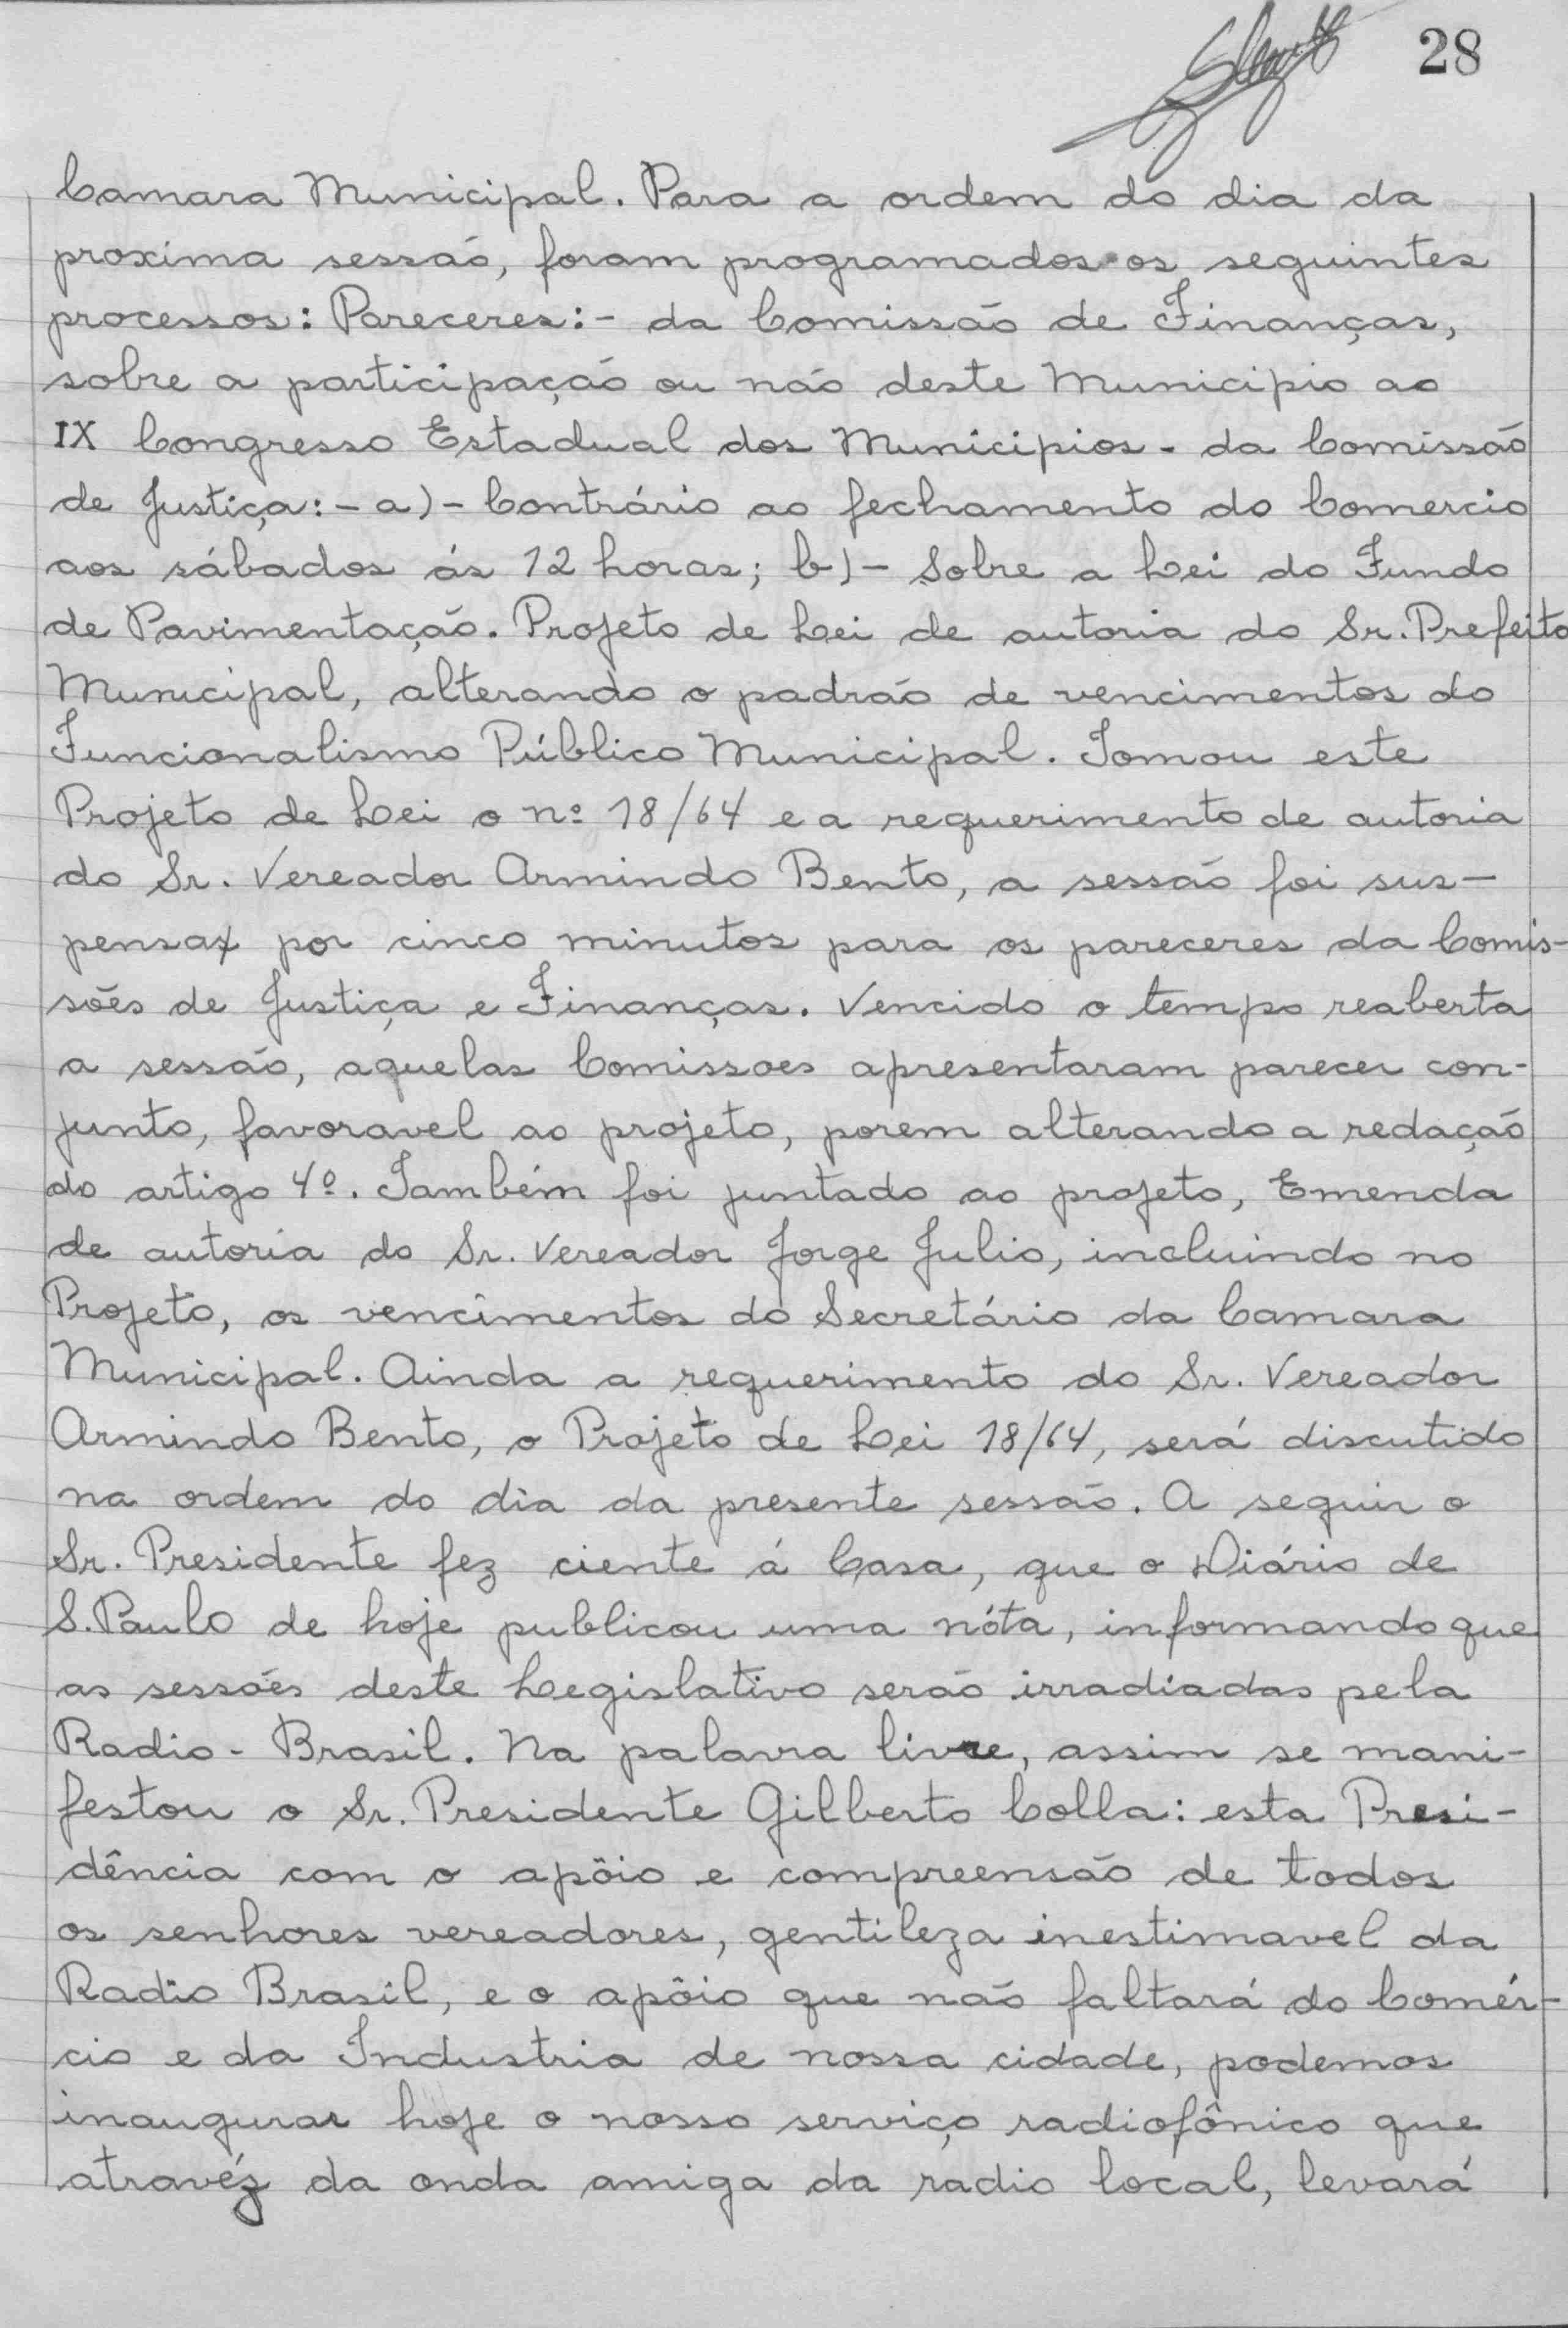 28
Camara Municipal. Para a ordem do dia da
proxima sessão, foram programados os seguintes
processos: Pareceres:- da Comissão de Finanças,
sobre a participação ou não deste Municipio ao
IX Congresso Estadual dos Municipios - da Comissão
de Justiça:- a)- Contrário ao fechamento do Comercio
aos sábados ás 12 horas; b)- Sobre a Lei do Fundo
de Pavimentação. Projeto de Lei de autoria do Sr. Prefeito
Municipal, alterando o padrão de vencimentos do
Funcionalismo Público Municipal. Tomou este
Projeto de Lei o nº 18/64 e a requerimento de autoria
do Sr. Vereador Armindo Bento, a sessão foi sus-
pensa por cinco minutos para os pareceres da Comis-
sões de Justiça e Finanças. Vencido o tempo reaberta
a sessão, aquelas Comissoes apresentaram parecer con-
junto, favoravel ao projeto, porem alterando a redação
do artigo 4º. Também foi juntado ao projeto, Emenda
de autoria do Sr. Vereador Jorge Julio, incluindo no
Projeto, os vencimentos do Secretário da Camara
Municipal. Ainda a requerimento do Sr. Vereador
Armindo Bento, o Projeto de Lei 18/64, será discutido
na ordem do dia da presente sessão. A seguir o
Sr. Presidente fez ciente á Casa, que o Diário de
S. Paulo de hoje publicou uma nóta, informando que
as sessões deste Legislativo serão irradiadas pela
Radio - Brasil. Na palavra livre, assim se mani-
festou o Sr. Presidente Gilberto Colla: esta Presi-
dência com o apôio e compreensão de todos
os senhores vereadores, gentileza inestimavel da
Radio Brasil, e o apôio que não faltará do Comér-
cio e da Industria de nossa cidade, podemos
inaugurar hoje o nosso serviço radiofônico que
atravéz da onda amiga da radio local, levará